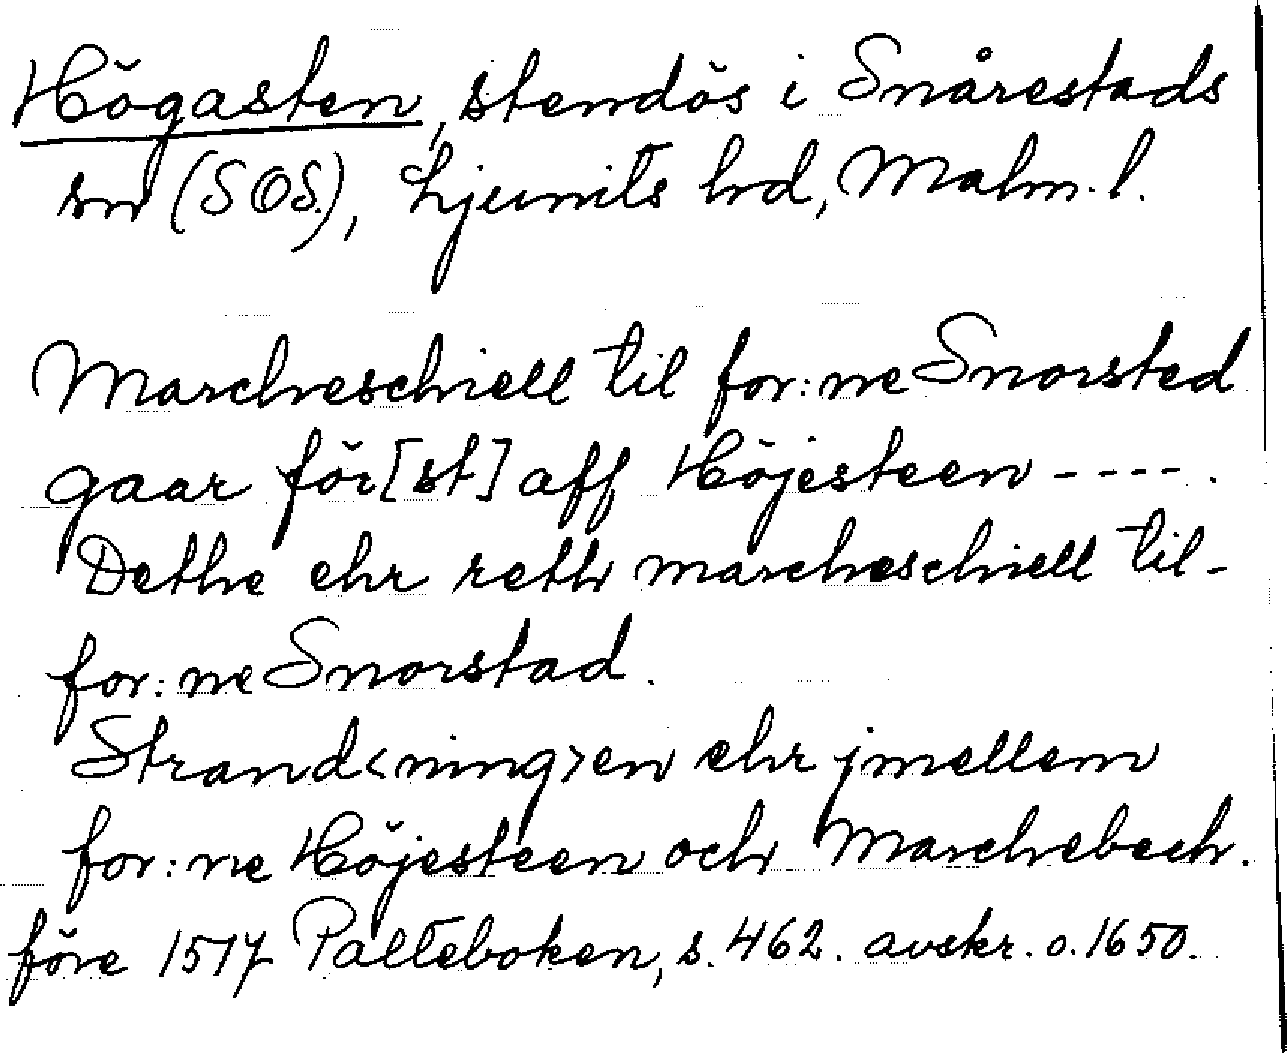 Högasten, stendös i Snårestads
sn (SOS.), Ljunits hd, Malm. l.
Marcheschiell til for:ne Snorsted
gaar för[st] aff Höjesteen ----.
Dethe ehr reth marcheschiell til-
for:ne Snorstad.
Strand<ning>en ehr jmellem
for:ne Höjesteen och Marchebech.
före 1517 Palteboken, s. 462. avskr. o. 1650.